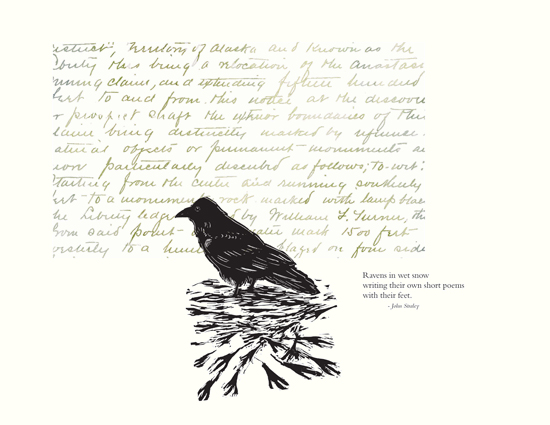 district", Territory of Alaska and known as the
this being a relocation of the
claim, and extending fifteen hundred
to and from this notice at the
prospect shaft the exterior boundaries of this
being distinctly marked by
objects or permanent monuments
particularly described as follows; To-wit:
Starting from the centre and running southerly
to a monument rock marked with
the Liberty ledge by William F. Turner, the
from said point 1500 feet
to a blazed on four side
Ravens in wet snow
writing their own short poems
with their feet.
- John Straley